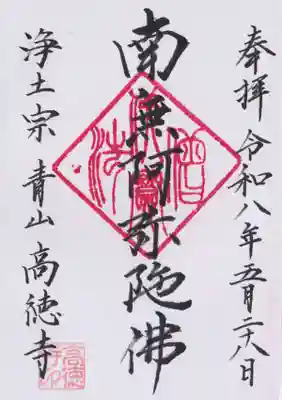 奉拝 令和八年五月二十八日
南無阿弥陀佛
浄土宗 青山 高徳寺